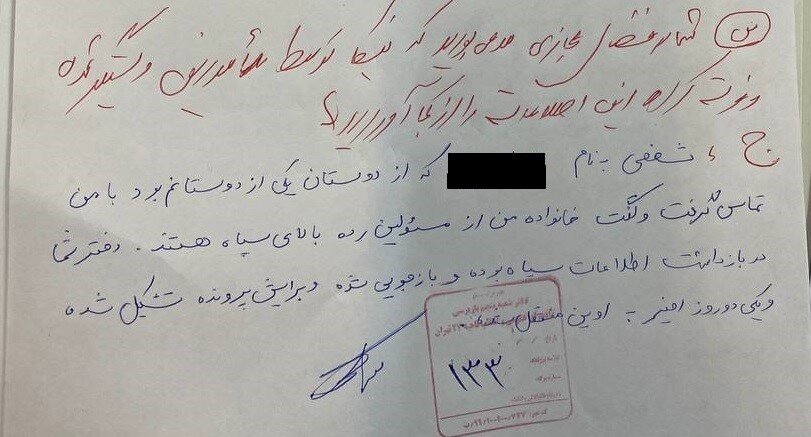 س) شما در فضای مجازی مدعی بودید که نیکا توسط مأمورین دستگیر شده
و فوت کرده این اطلاعات را از کجا آوردید؟
ج، شخصی به نام که از دوستان یکی از دوستانم بود با من
تماس گرفت و گفت خانواده من از مسئولین رده بالای سپاه هستند. دختر شما
در بازداشت اطلاعات سپاه بوده و بازجویی شده و برایش پرونده تشکیل شده
و یکی دو روز اخیر به اوین منتقل شده.
۱۳۳